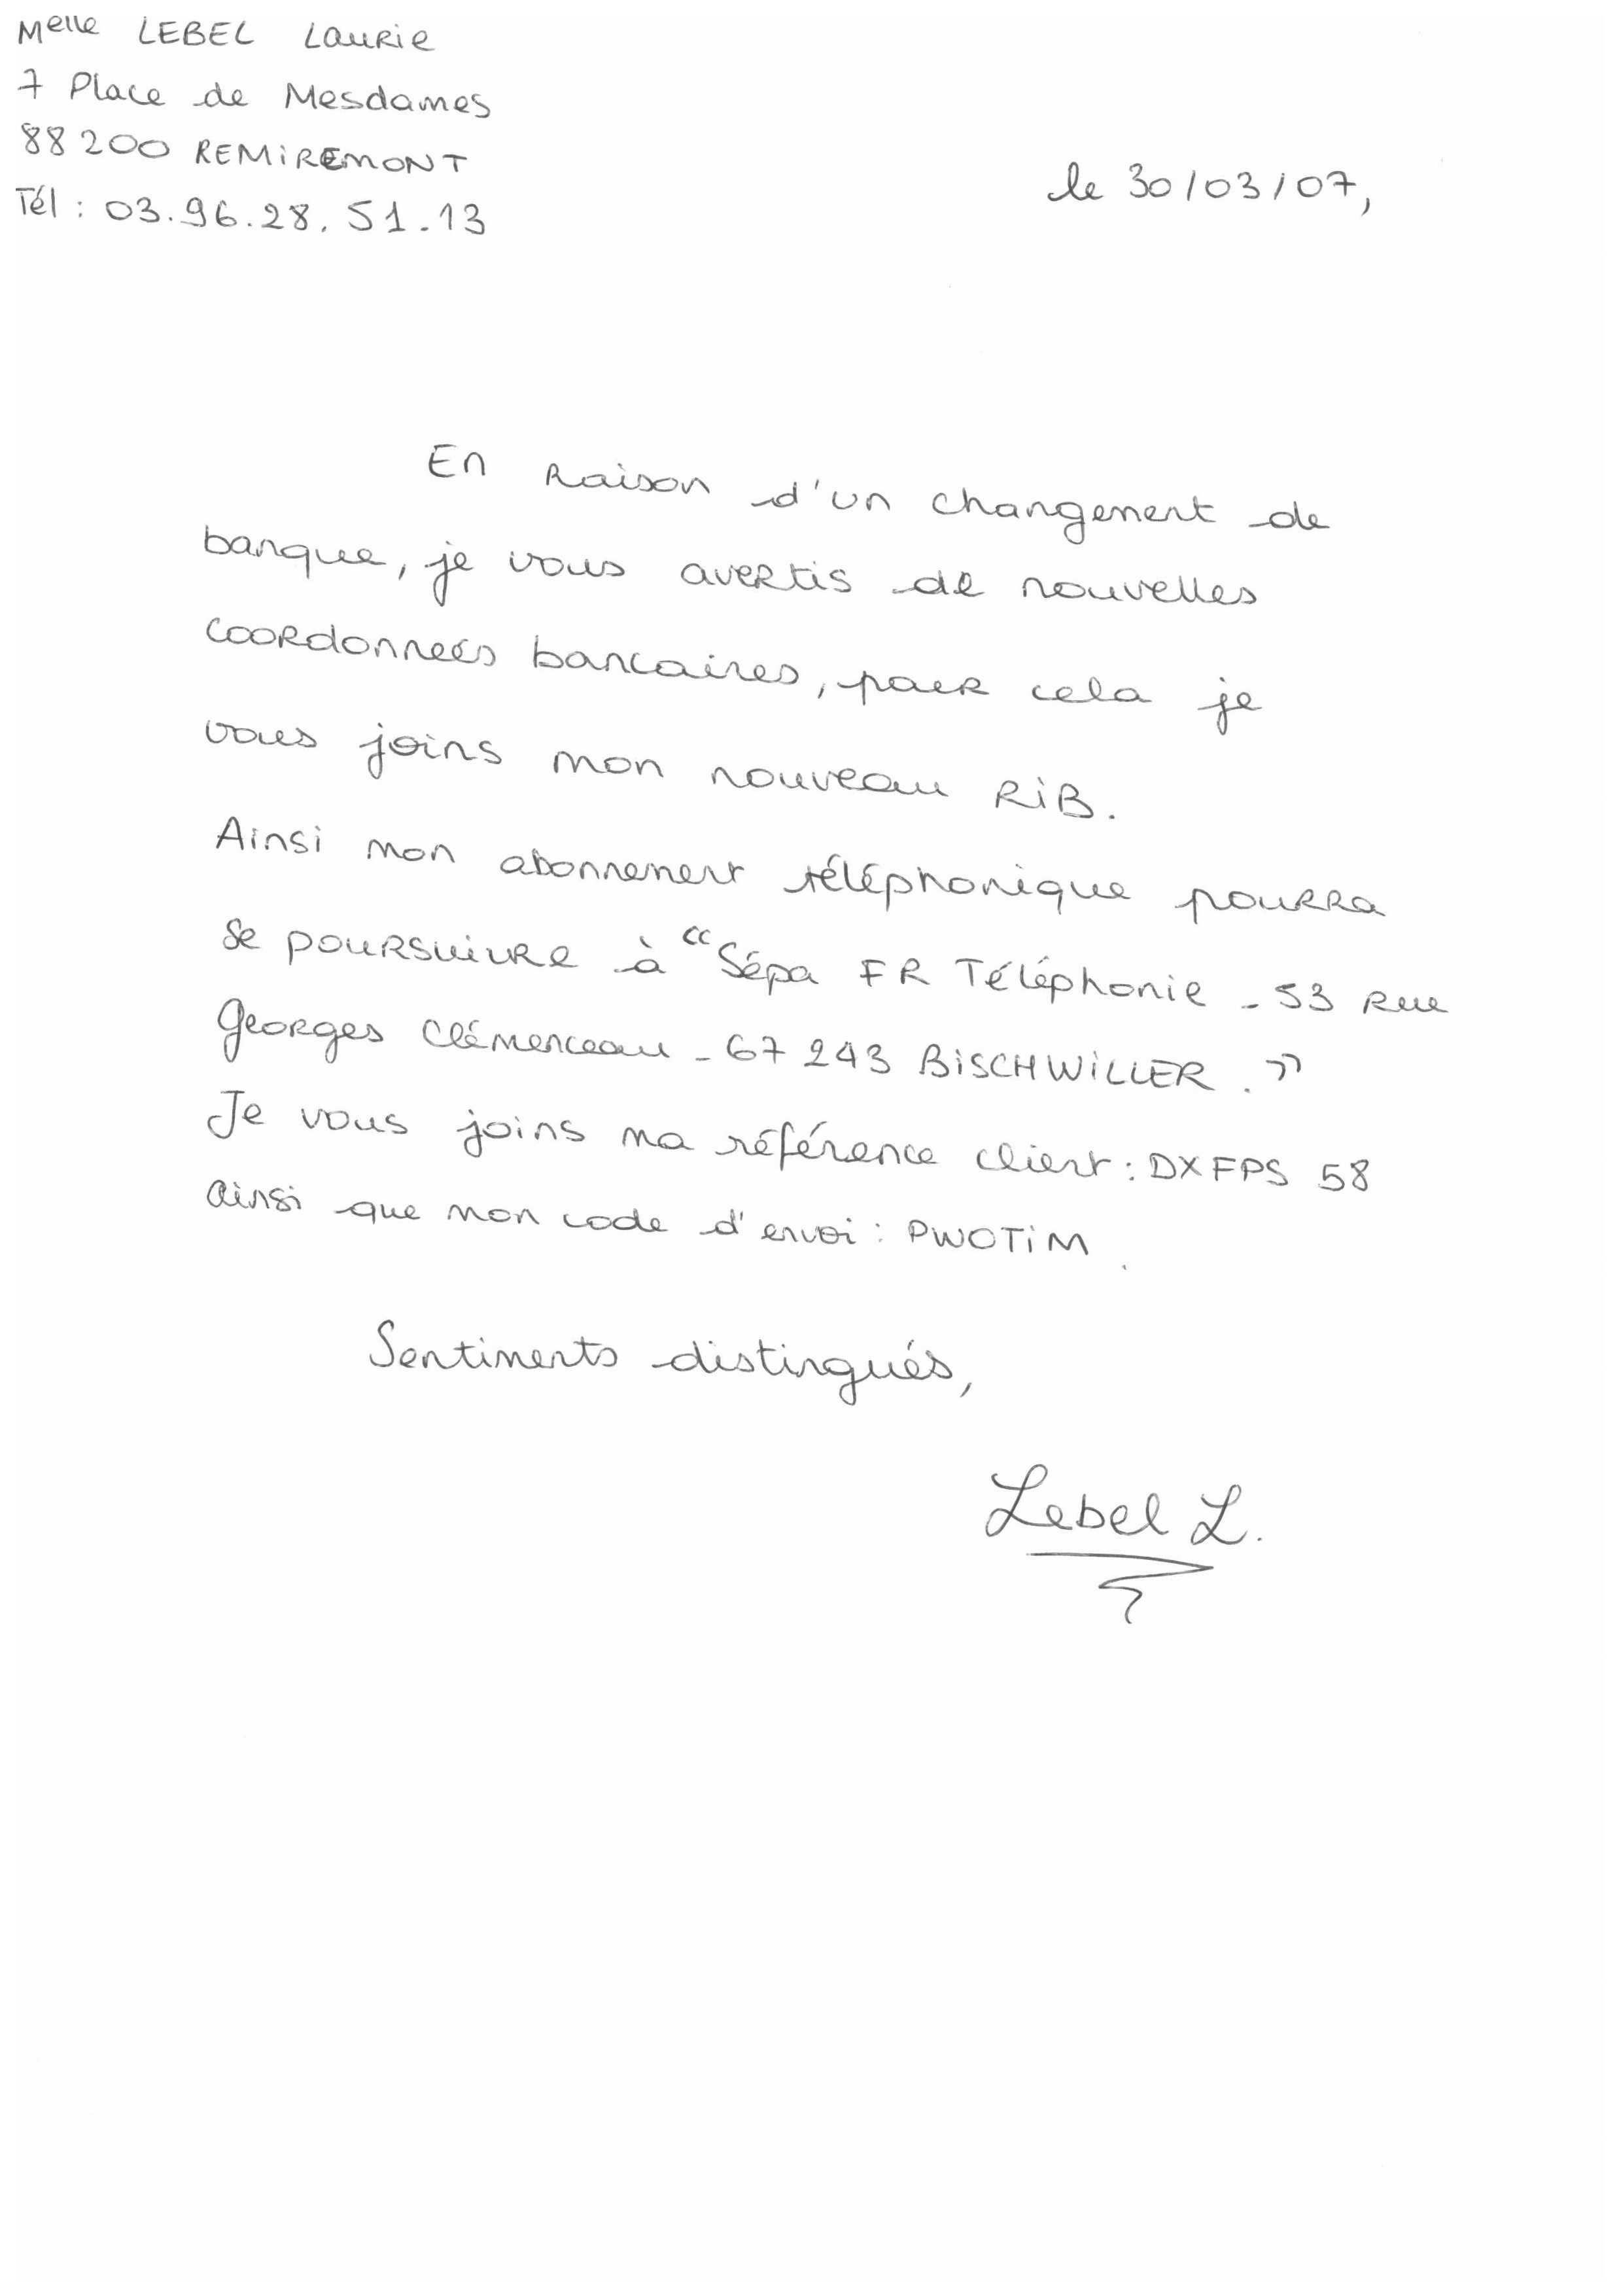 Melle LEBEL Laurie
7 Place de Mesdames
88200 REMIREMONT
Tél : 03.96.28.51.13
le 30/03/07,
En raison d'un changement de
banque, je vous avertis de nouvelles
coordonnées bancaires, pour cela je
vous joins mon nouveau RiB.
Ainsi mon abonnement téléphonique pourra
se poursuivre à "Sépa FR Téléphonie - 53 Rue
Georges Clémenceau - 67 243 BISCHWILLER."
Je vous joins ma référence client : DXFPS 58
ainsi que mon code d'envoi : PWOTIM.
Sentiments distingués,
Lebel L.